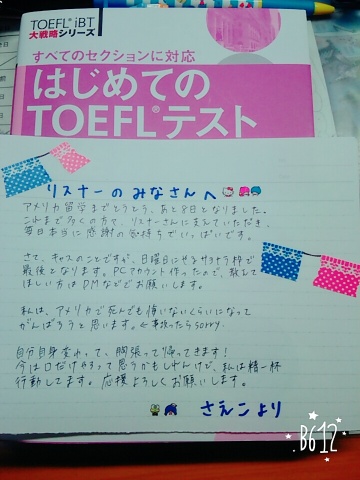 TOEFL iBT
大戦略シリーズ
すべてのセクションに対応
はじめての
TOEFL®テスト
リスナーのみなさんへ
アメリカ留学までとうとう、あと8日となりました。
これまで多くの方々、リスナーさんに支えていただき、
毎日本当に感謝の気持ちでいっぱいです。
さて、キャスのことですが、日曜日にやるサヨナラ枠で
最後となります。PCアカウント作ったので、教えて
ほしい方はDMなどでお願いします。
私は、アメリカで死んでも悔いないくらいになって
がんばろうと思います。←事故ったらsorry.
自分自身変わって、胸張って帰ってきます!
今は口だけやろって思うかもしれんけど、私は精一杯
行動してます。応援よろしくお願いします。
さえこより
B612